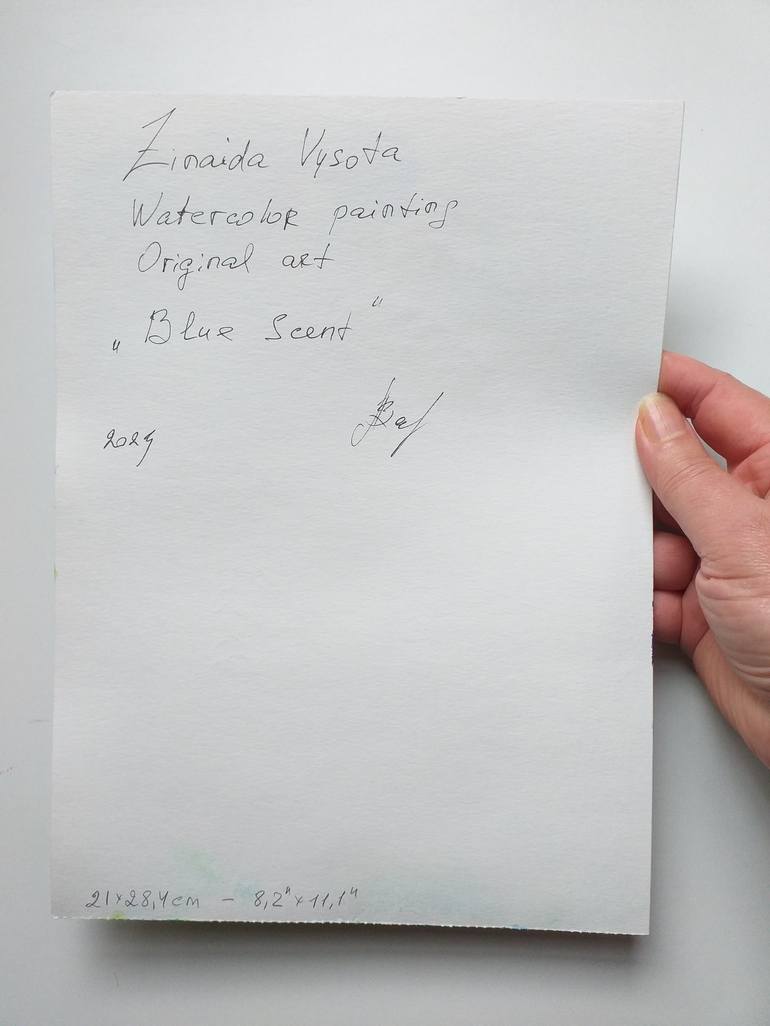 Zinaida Vysota
Watercolor painting
Original art
„Blue Scent"
2024
21×28,4cm – 8,2"×11,1"